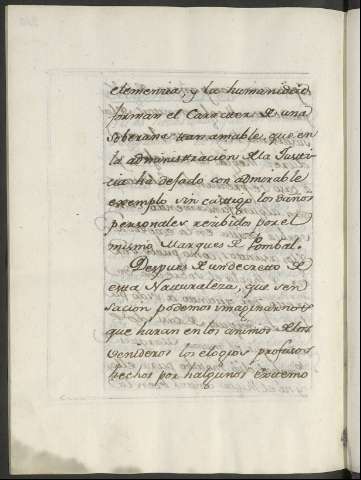 clemencia, y la humanidad
forman el Caracter de una
Soberana tan amable, que en
la administracion de la Justi
cia ha dejado con admirable
exemplo sin castigo los daños
personales recibidos por el
mismo Marques de Pombal.
Despues de un decreto de
esta Naturaleza, que sen
sacion podemos imaginarnos
que haran en los animos de los
venideros los elogios profusos
hechos por halgunos extremo